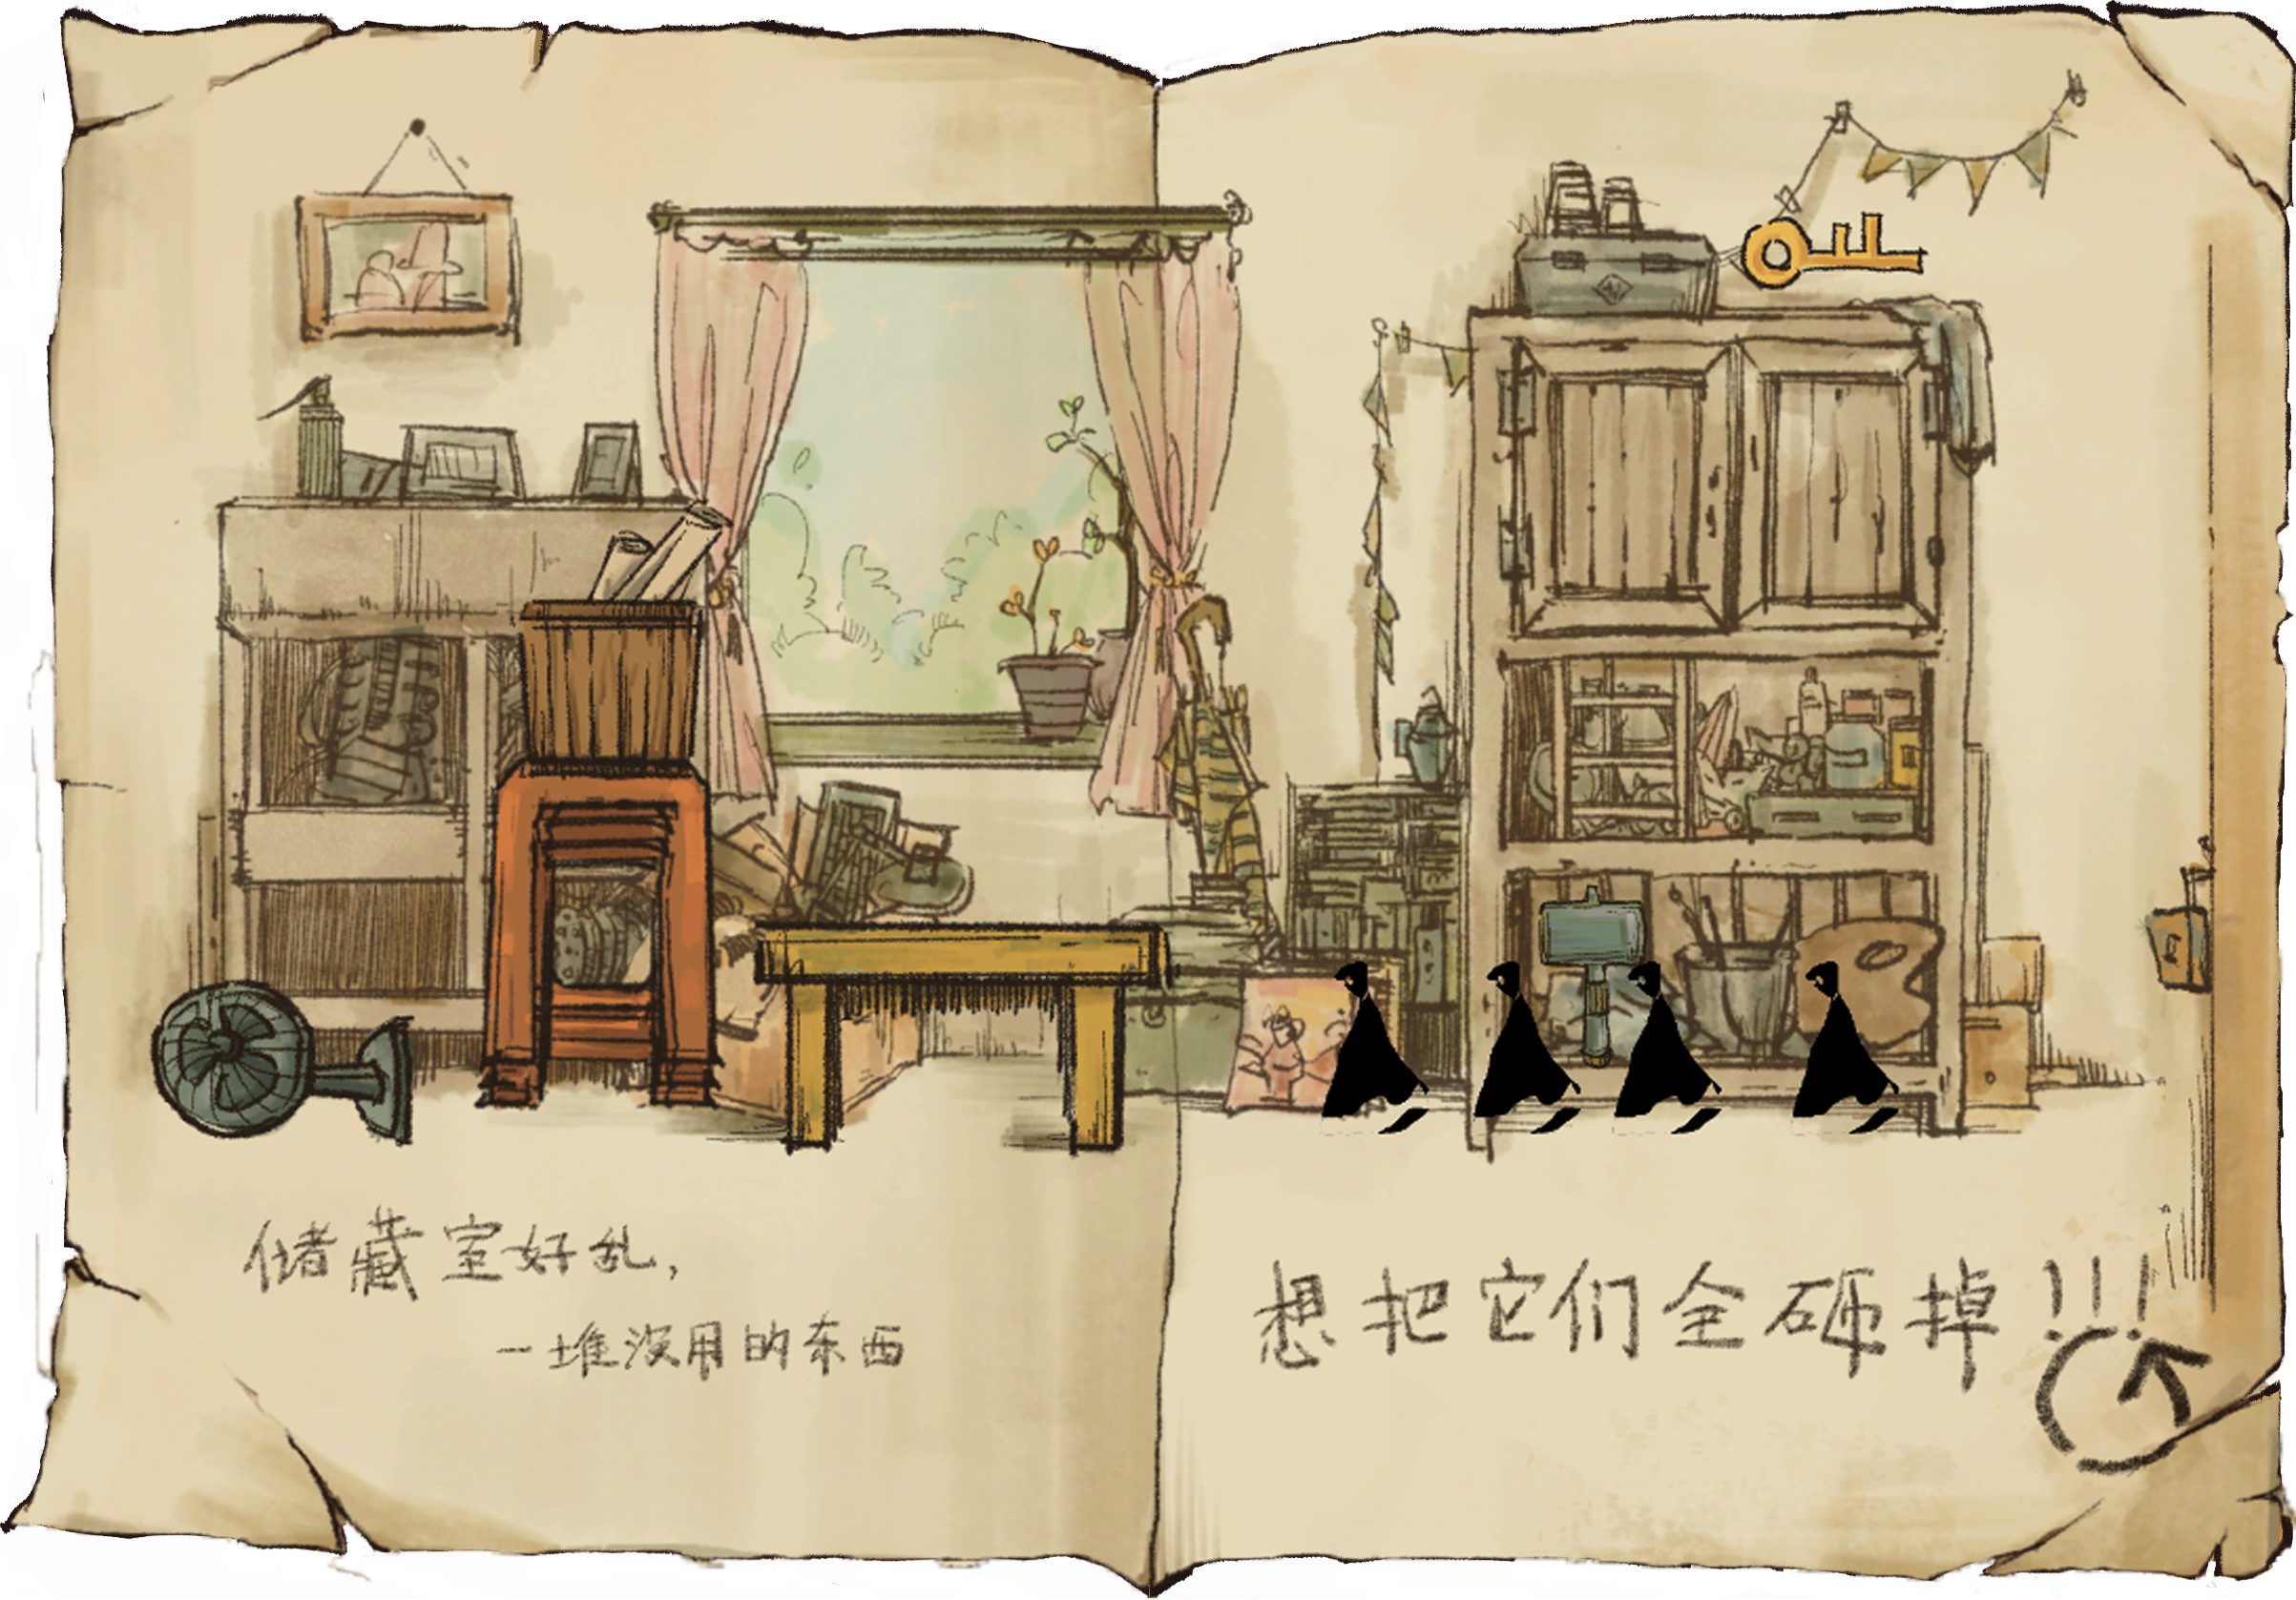 储藏室好乱，
一堆没用的东西
想把它们全砸掉!!!